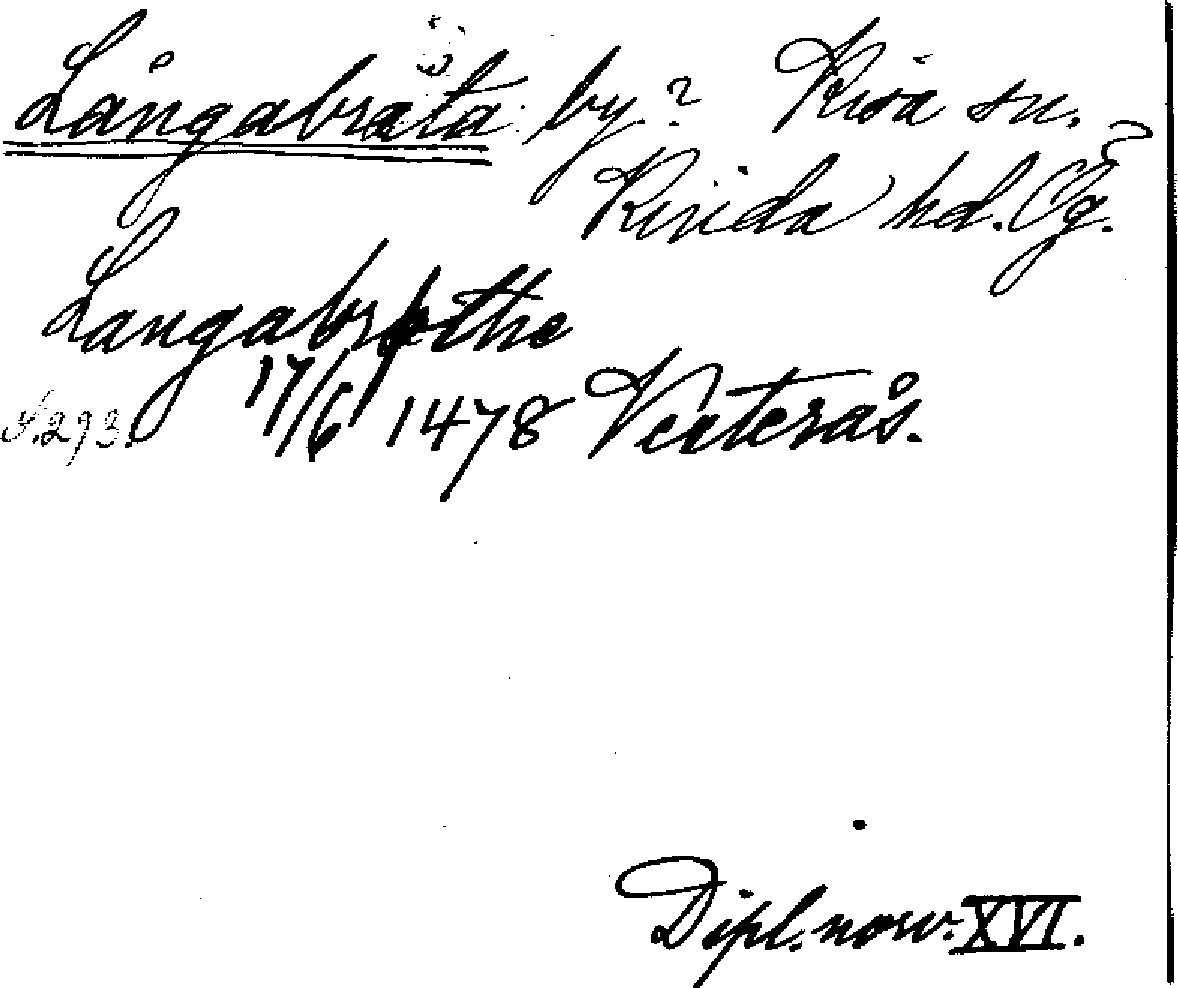 Långabråta by? Kisa sn.
Kinda hd. Ög.
Langabrothe
s. 293. 17/6 1478 Vesterås.
Dipl. norv. XVI.